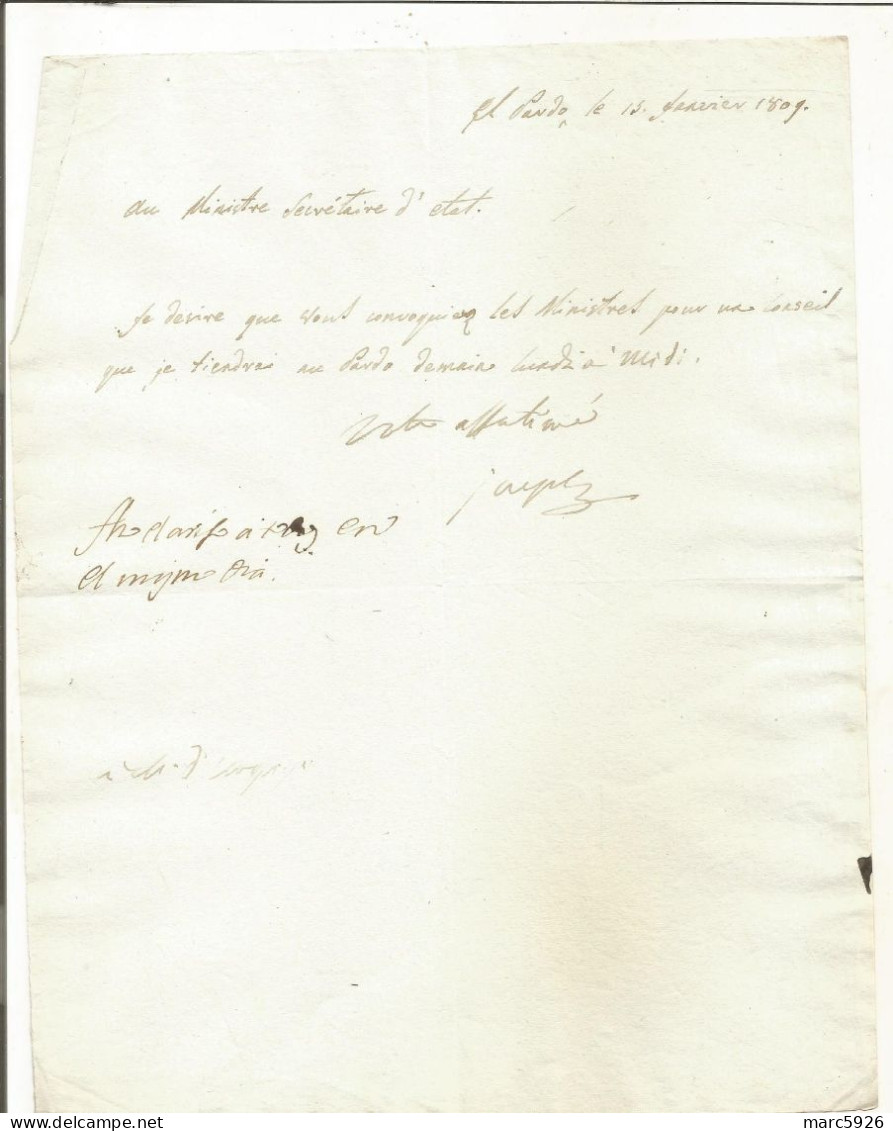 El Pardo, le 15. Janvier 1809.
Au Ministre Secrétaire d'etat.
Je desire que vous convoquiez les Ministres pour un Conseil
que je tiendrai au Pardo demain lundi à Midi.
Votre affectionné
joseph
en
el mismo dia.
à M. d'
marc5926